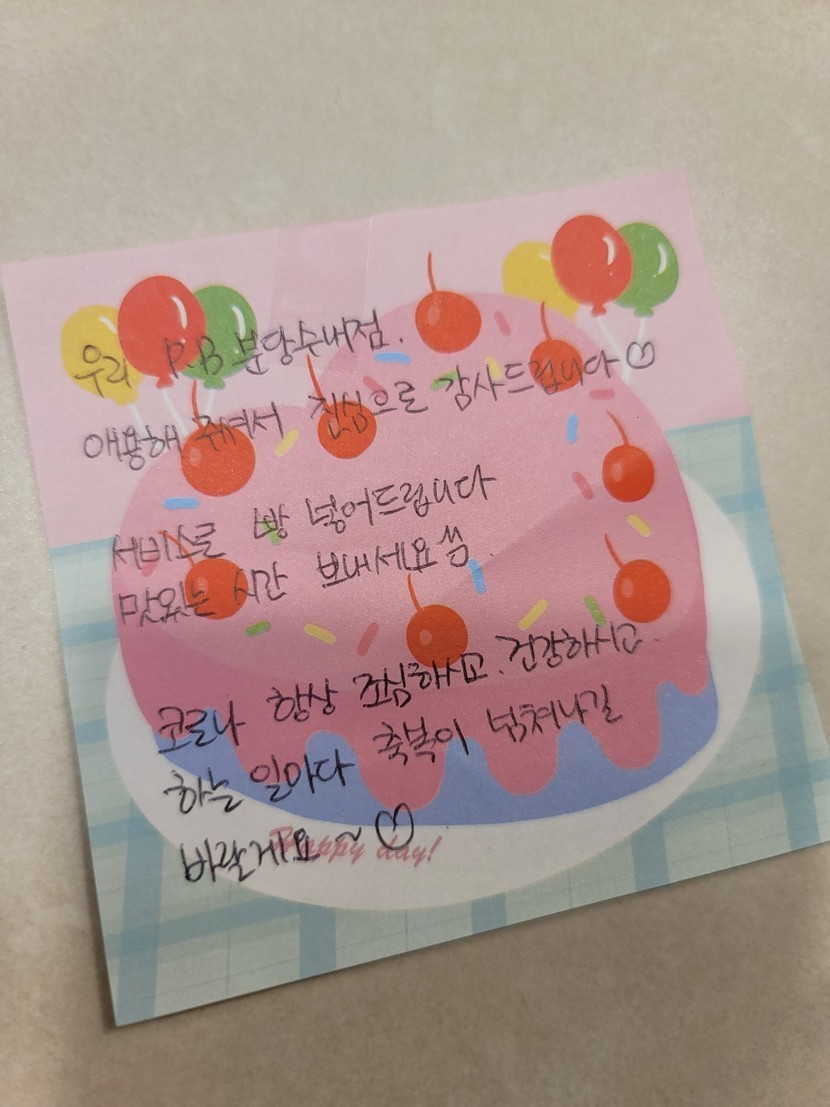 우리 P.B 분당수내점.
애용해 주셔서 진심으로 감사드립니다♡
서비스로 빵 넣어드립니다
맛있는 시간 보내세요
코로나 항상 조심하시고. 건강하시고.
하는 일마다 축복이 넘쳐나길
바랄게요~♡
Happy day!